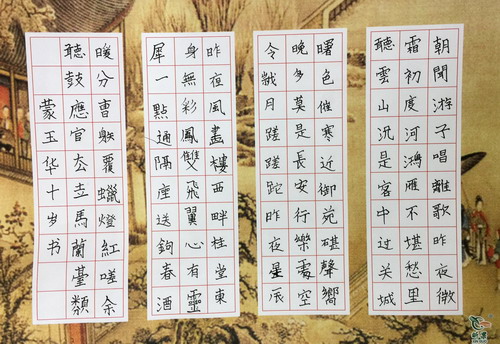 朝聞游子唱離歌昨夜微
霜初度河鴻雁不堪愁里
聽雲山況是客中過关城
曙色催寒近御苑碪聲嚮
晚多莫是長安行樂處空
令歲月蹉蹉跎昨夜星辰
昨夜風畫樓西畔桂堂東
身無彩鳳雙飛翼心有靈
犀一點通隔座送鉤春酒
暖分曹躲覆蠟燈紅嗟余
聽鼓應官去立馬蘭臺類
蒙玉华十岁书